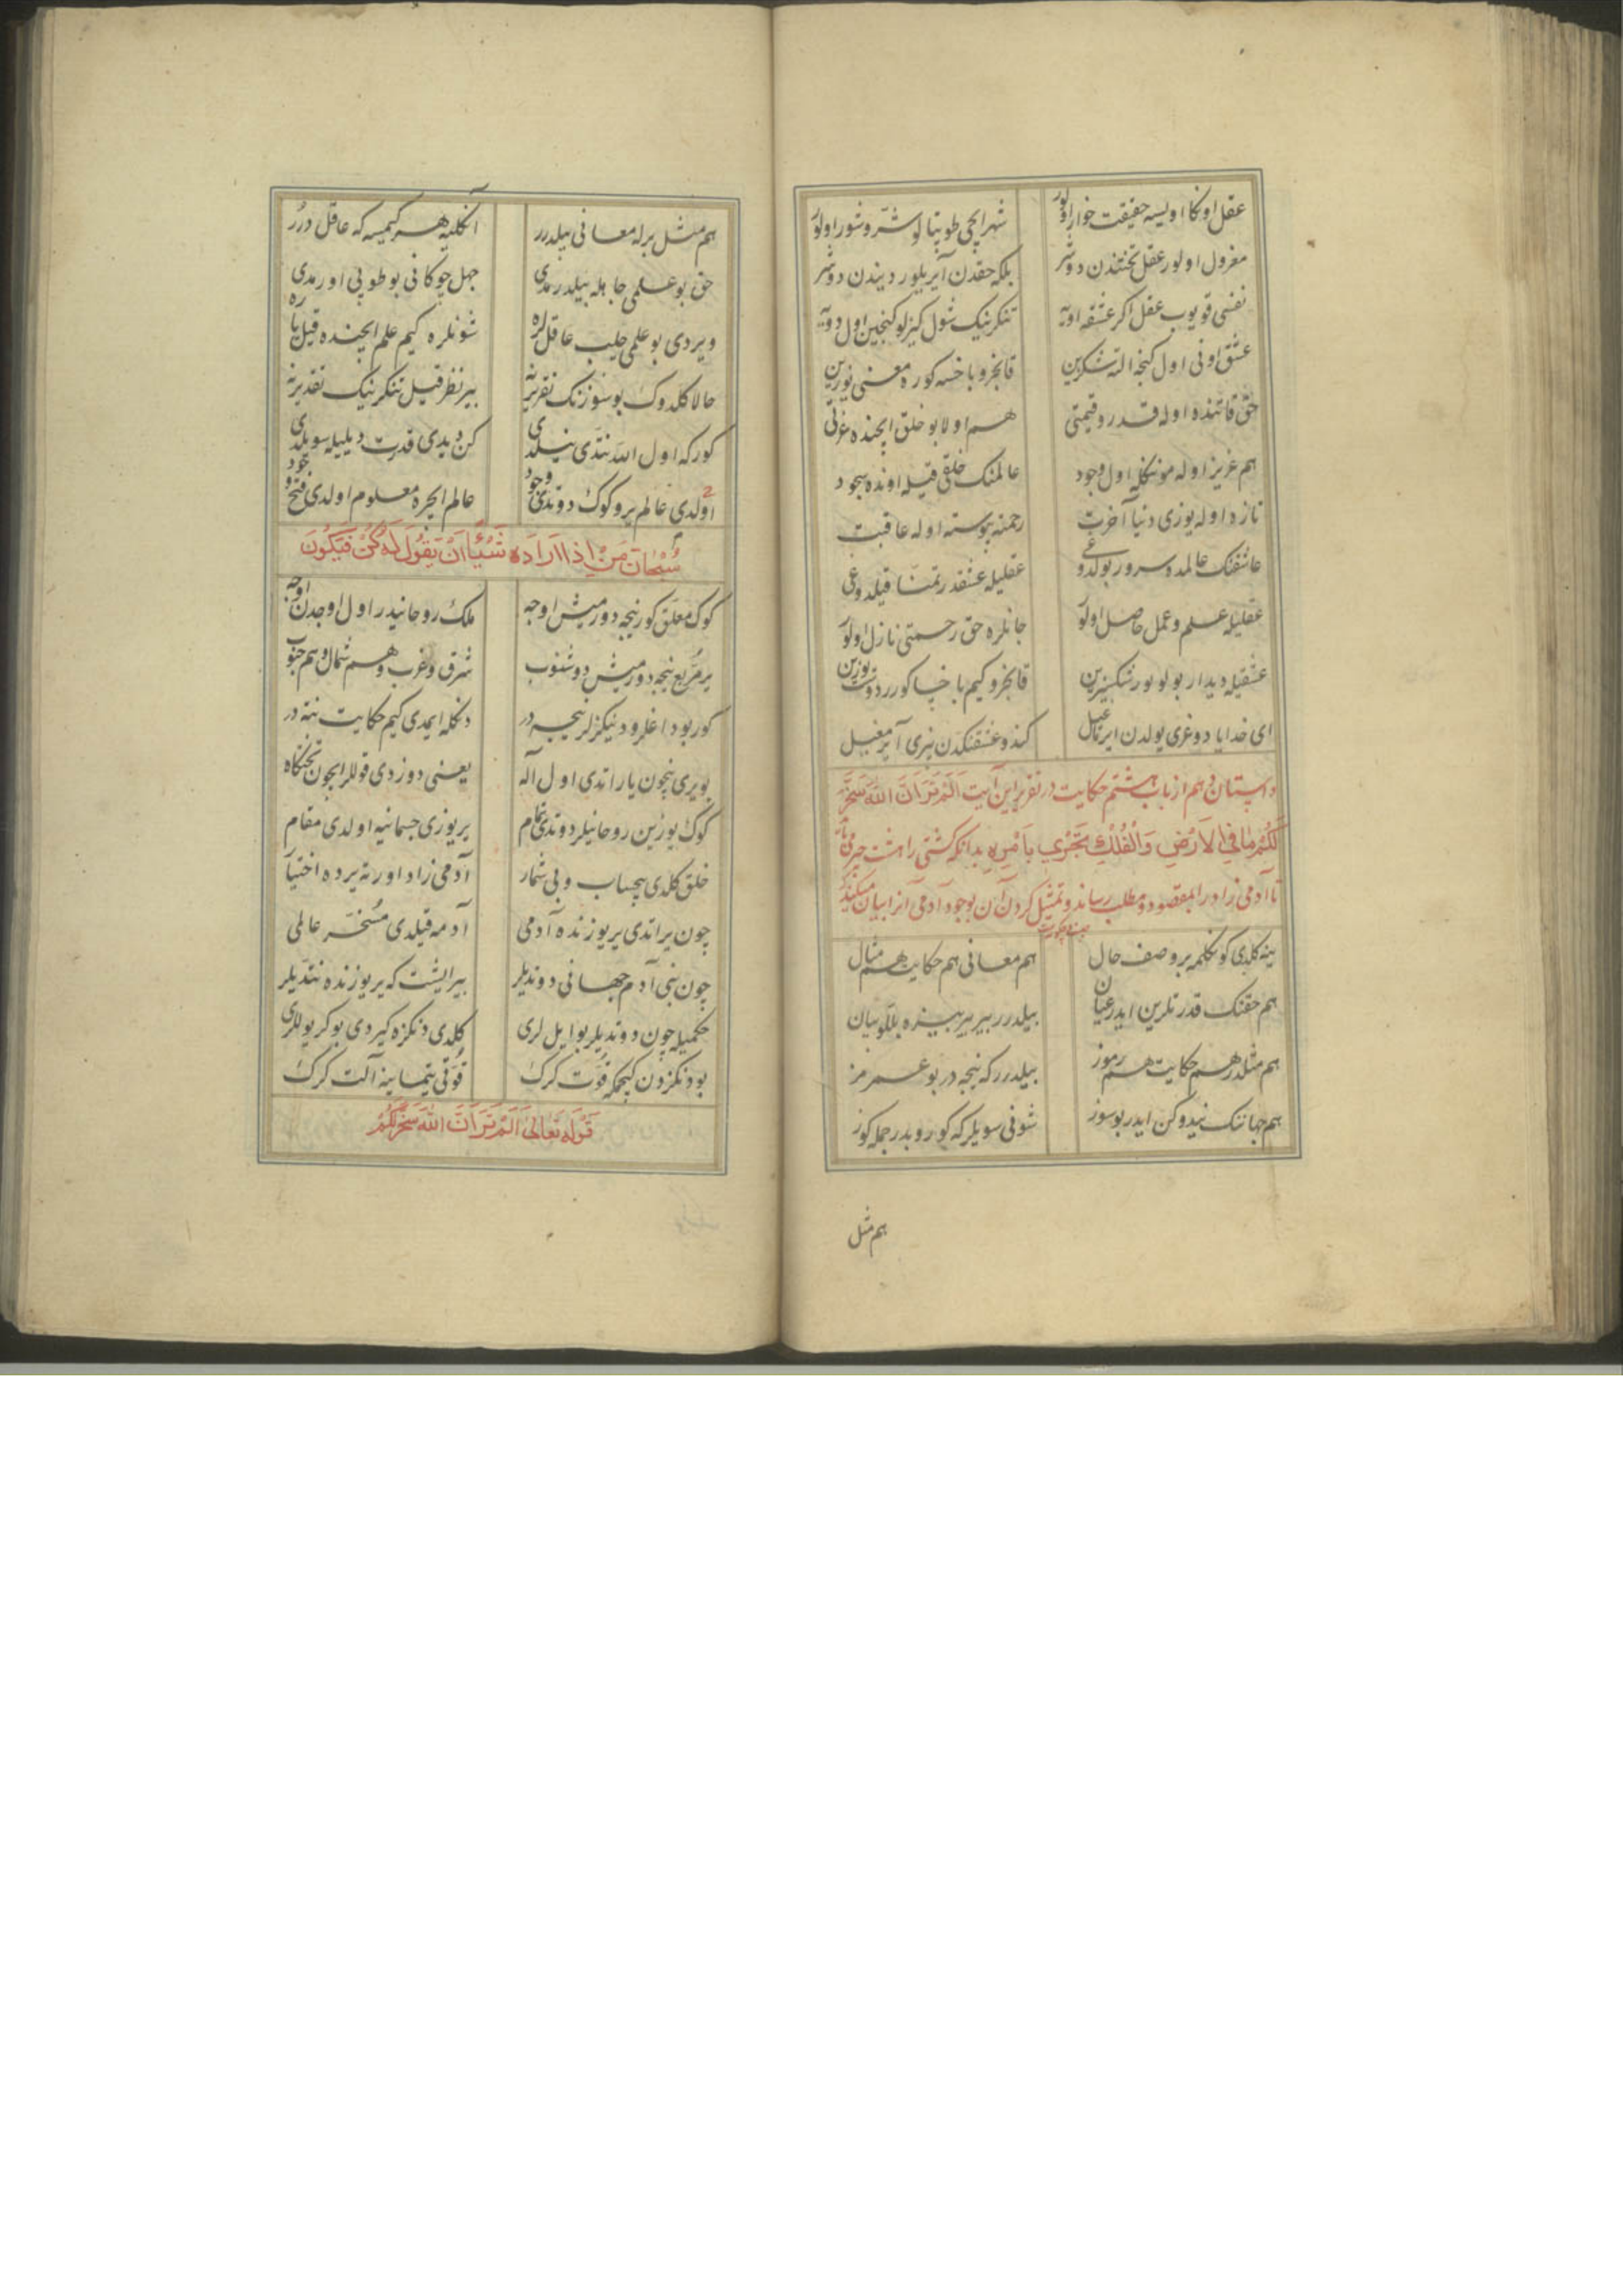 عقل اونکا اویسه حقیقت خوار اولور شهر ایچی طوپتالو شر و شور اولور
معزول اولور عقل تختندن دوشر بلکه حقدن آیریلور دیندن دوشر
نفسی قویوب عقل اکر عشقه اویه تنکرینک شول کیزلو کنجین اول دویه
عشق اونی اول کنجه الته شکرین قانجرو باخسه کوره معنی نورین
حق قاتنده اوله قدر و قیمتی هم اولا بو خلق ایچنده عزتی
هم عزیز اوله اول وجود عالمنک خلقی قیله اونده سجود
تازه اوله یوزی دنیا آخرت رحمته پیوسته اوله عاقبت
عاشقنک عالمده سرور بولدوغی عقلیله عشقدر تمنا قیلدوغی
عقلیله علم و عمل حاصل اولور جانلره حق رحمتی نازل اولور
عشقیله دیدار بولونور شکسزین قانجرو کیم باخسا کورر دوست یوزین
ای خدایا دوغری یولدن ایرمغیل کندو عشقنکدن بیزی آیرمغیل
داستان دهم از باب هشتم حکایت در تقریر این آیت اَلَمْ تَرَ اَنَّ اللّٰهَ سَخَّرَ
لَکُمْ مَا فِی الْاَرْضِ وَالْفُلْكِ تَجْرِي بِاَمْرِهِ بدانکه کشتی را هشت چیز
تا آدمی زاد را بمقصود و مطلب رساند و تمثیل کردن آن بوجود آدمی آنرا بیان میکند
ینه کلدی کونکلمه بر وصف حال هم معانی هم حکایت هم مثال
هم حقنک قدرتلرین ایدر عیان بیلدرر بیر بیر بیزه بللو بیان
هم مثلدر هم حکایت هم رموز بیلدرر که نیجه در بو عمرمز
هم جهاننک نیدوکن ایدر بو سوز شونی سویلر که کوروبدر جمله کوز
هم مثل
هم مثل برله معانی بیلدرر آنکلیه هر کیمسه که عاقل درر
حق بو علمی جاهله بیلدرمدی جهل چوکانی بو طوپی اورمدی
ویردی بو علمی چلب عاقللره شونلره کیم علم ایچنده قیل یاره
حالا کلدوک بو سوزنک تقریرینه بیر نظر قیل تنکرینک تقدیرینه
کورکه اول الله نتدی نیلدی کن دیدی قدرت دیلیله سویلدی
اولدی عالم یر و کوک دوتدی وجود عالم ایچره معلوم اولدی فتح و جود
سُبْحَانَ مَنْ اِذَا اَرَادَهُ شَیْئًا اَنْ یَقُولَ لَهُ کُنْ فَیَکُونُ
کوک معلق کور نیجه دورمیش اوجه ملک روحانیدر اول اوجدن اوجه
یر مربع نیجه دورمیش دوشنوب شرق و غرب و هم شمال و هم جنوب
کور بو داغلر و دنیکزلر نیجه در دنکله ایمدی کیم حکایت نته در
بو یری نیچون یاراتدی اول آله یعنی دوزدی قوللر ایچون تختکاه
کوک یوزین روحانیلر دوتدی تمام یر یوزی جسمانیه اولدی مقام
خلق کلدی بیحساب و بی شمار آدمی زاد اورته یرده اختیار
چون یراتدی یر یوزنده آدمی آدمه قیلدی مُسَخَّر عالمی
چون بنی آدم جهانی دوتدیلر بیر ایشت که یر یوزنده نتدیلر
حکمیله چون دوتدیلر بو ایل لری کلدی دنکزه کیردی بو کز یوللری
بو دنکزدن کیچمکه قوت کرک قوتی یتماینه آلت کرک
قَوْلُهُ تَعَالٰی اَلَمْ تَرَ اَنَّ اللّٰهَ سَخَّرَ لَکُمْ